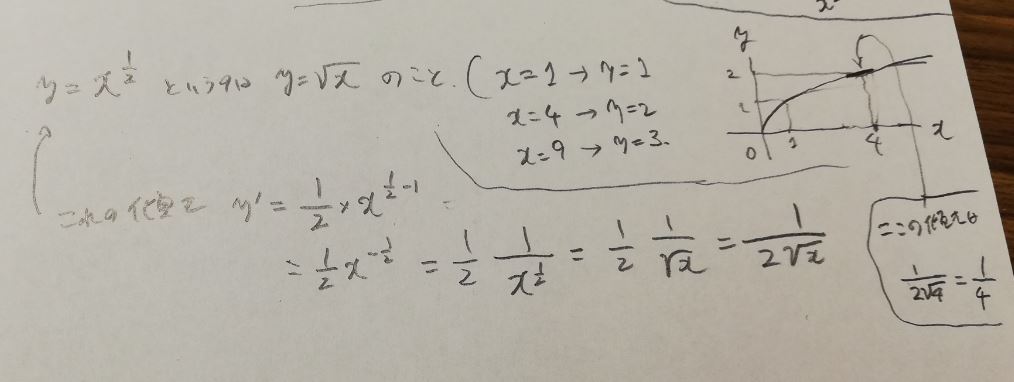 y = x^{1/2} というのは y = √x のこと. ( x=1 → y=1
x=4 → y=2
x=9 → y=3.
y
2
1
0 1 4 x
これの傾きで y' = 1/2 × x^{1/2 -1} =
= 1/2 x^{-1/2} = 1/2 1/x^{1/2} = 1/2 1/√x = 1/2√x
ここの傾きは
1/2√4 = 1/4